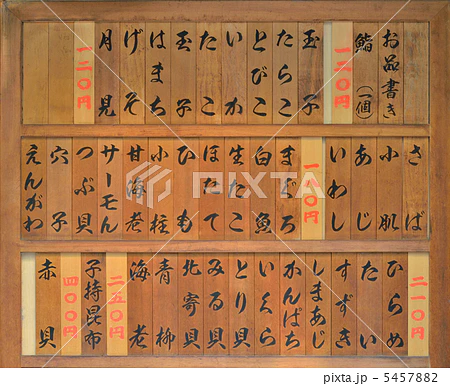 お品書き
鮨(一個)
一二〇円
玉子
たらこ
とびこ
いか
たこ
玉子
はまち
げそ
月見
一二〇円
さば
小肌
あじ
いわし
一八〇円
まぐろ
白魚
生たこ
ほたて
ひも
小柱
甘海老
サーモん
つぶ貝
穴子
えんがわ
二一〇円
ひらめ
たい
すずき
しまあじ
かんぱち
いくら
とり貝
みる貝
北寄貝
青柳
海老
二五〇円
子持昆布
四〇〇円
赤貝
PIXTA
pixta.jp - 5457882